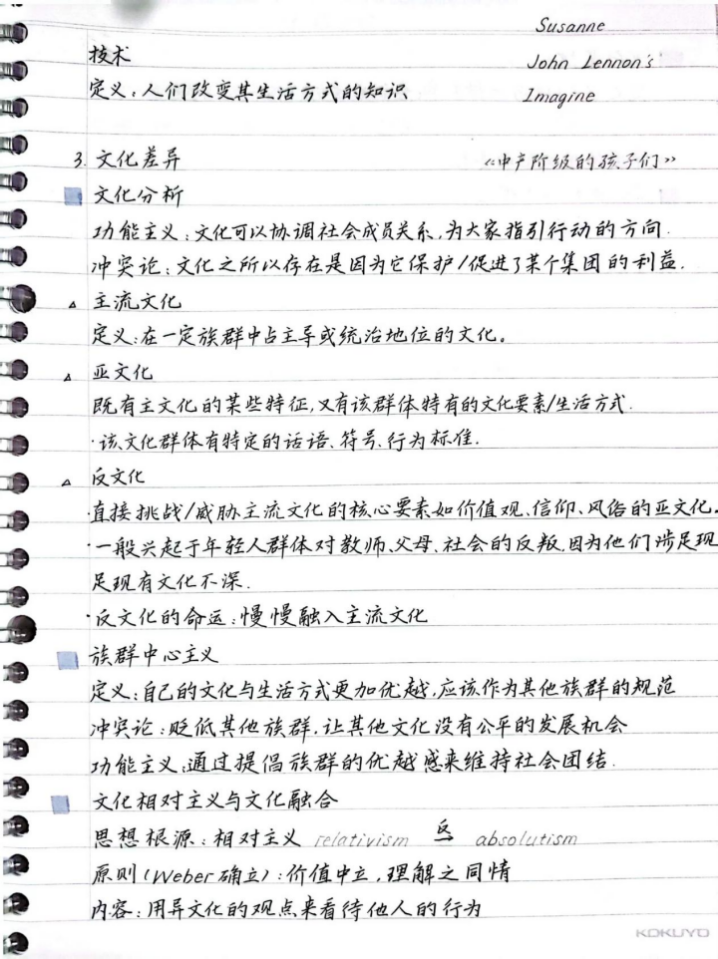 Susanne
技术
John Lennon's
定义：人们改变其生活方式的知识
Imagine
3. 文化差异
《中产阶级的孩子们》
文化分析
功能主义：文化可以协调社会成员关系，为大家指引行动的方向.
冲突论：文化之所以存在是因为它保护/促进了某个集团的利益.
△ 主流文化
定义：在一定族群中占主导或统治地位的文化。
△ 亚文化
既有主文化的某些特征，又有该群体特有的文化要素/生活方式.
·该文化群体有特定的话语、符号、行为标准.
△ 反文化
·直接挑战/威胁主流文化的核心要素如价值观、信仰、风俗的亚文化。
·一般兴起于年轻人群体对教师、父母、社会的反叛，因为他们涉足现
足现有文化不深.
·反文化的命运：慢慢融入主流文化
族群中心主义
定义：自己的文化与生活方式更加优越，应该作为其他族群的规范
冲突论：贬低其他族群，让其他文化没有公平的发展机会
功能主义：通过提倡族群的优越感来维持社会团结.
文化相对主义与文化融合
思想根源：相对主义 relativism 反→ absolutism
原则(Weber确立)：价值中立，理解之同情
内容：用异文化的观点来看待他人的行为
KOKUYO